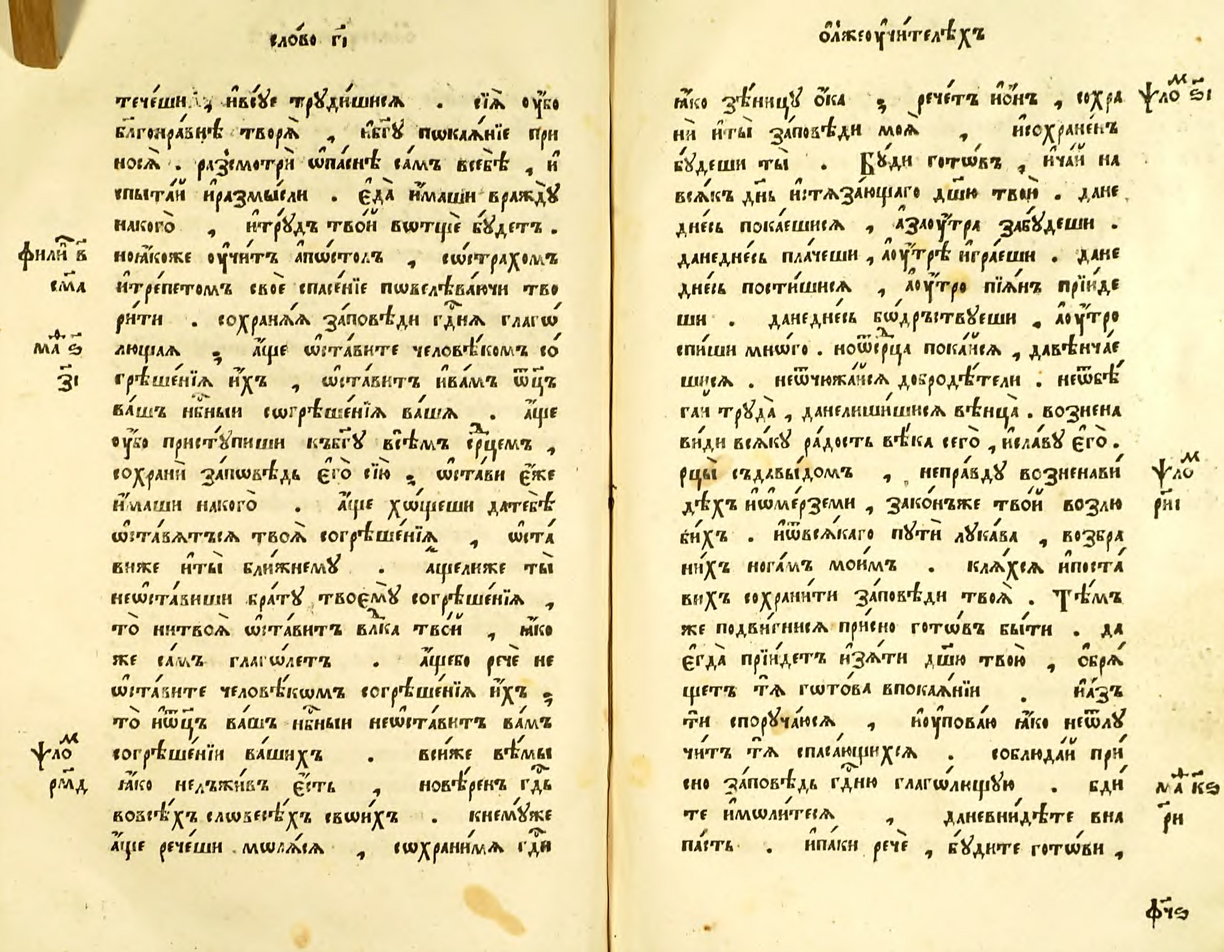 сло́во г҃і
течеши , ивсꙋе трꙋдишисѧ . сїѧ ѹбо
благонравнѣ творѧ , ибг҃ꙋ пѡкаѧнїе при
носѧ . разсмотри ѡпаснѣ самъ всебѣ , и
спытаи иразмысли . еда имаши враждꙋ
накого , итрꙋдъ твои вѡтще бꙋдетъ .
фили в҃
ноꙗкоже ѹчитъ апѡстолъ , сѡстрахомъ
сма
итрепетомъ свое спасенїе пѡвелѣваючи тво
рити . сохранѧѧ заповѣди гд҃нѧ глаго
ма ѕ҃
лющаѧ ; аще ѡставите человѣкомъ со
з҃і
грѣшенїѧ ихъ , ѡставитъ ивамъ ѿц҃ъ
вашъ нб҃ныи сѡгрѣшенїѧ вашѧ . аще
ѹбо пристꙋпиши къбг҃ꙋ всѣмъ ср҃цемъ ,
сохрани запѡвѣдь его сїю ; ѡстави еже
имаши накого . аще хѡщеши датебѣ
ѡставѧтьсѧ твоѧ согрѣшенїѧ , ѡста
виже иты ближнемꙋ . ащелиже ты
неѡставиши братꙋ твоемꙋ согрѣшенїѧ ,
то нитвоѧ ѡставитъ вл҃ка твои , ꙗко
же самъ глаголетъ . ащебо рече не
ѡставите человѣкѡмъ согрѣшенїѧ ихъ ;
то иѿц҃ъ вашъ нб҃ныи неѡставитъ вамъ
ѱло м
согрѣшенїи вашихъ . всиже вѣмы
рм҃д
ꙗко нелъживъ есть , новѣренъ гд҃ь
вовсѣхъ слѡвесѣхъ свѡихъ . кнемꙋже
аще речеши молѧсѧ , сѡхранимѧ гд҃и
олжеѹчителѣхъ
ꙗко зѣницꙋ ока ; речетъ ионъ , сохра
ѱло м ѕ҃і
ни иты заповѣди моѧ , исохраненъ
бꙋдеши ты . Бꙋди готѡвъ , ичаи на
всѧкъ дн҃ь истѧзающаго дш҃ю твою . дане
днесь покаешисѧ , азаѹтра забꙋдеши .
данеднесь плачеши , аѹтрѣ играеши . дане
днесь постишисѧ , аѹтро пїѧнъ прїиде
ши . данеднесь бѡдръствꙋеши , аѹтро
спиши мнѡго . ноѿсерца покаисѧ , давѣнчае
шисѧ . неѿчюжаисѧ добродѣтели . неѿбѣ
гаи трꙋда , данелишишисѧ вѣнца . возненa
види всѧкꙋ радость вѣка сего , иславꙋ его .
рцы съдавыдомъ , неправдꙋ возненави
ѱло м
дѣхъ иѡмерземи , законъже твои возлю
ри҃і
бихъ . иѿвсѧкаго пꙋти лꙋкава , возбра
нихъ ногамъ моимъ . клѧхсѧ ипоста
вихъ сохранити заповѣди твоѧ . Тѣмъ
же подвигнисѧ присно готѡвъ быти . да
егда прїидетъ изѧти дш҃ю твою , обрѧ
щетъ тѧ гѡтова впокаѧнїи . иазъ
ти спорꙋчаюсѧ , иѹповаю ꙗко неѿлꙋ
читъ тѧ спасающихсѧ . соблюдаи при
сно заповѣдь гд҃ню глагѡлющꙋю . бди
ма кѕ҃
те имѡлитесѧ , даневнидѣте вна
ри
пасть . ипаки рече , бꙋдите готѡви ,
фч҃ѕ